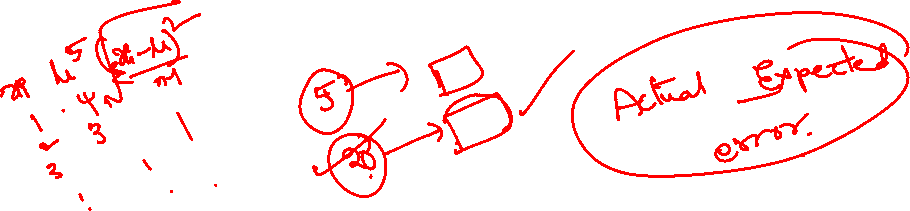 xi μ 5 (xi-μ)²
n-1
1 . 4
2 3 1
3
5
20
Actual Expected
error.